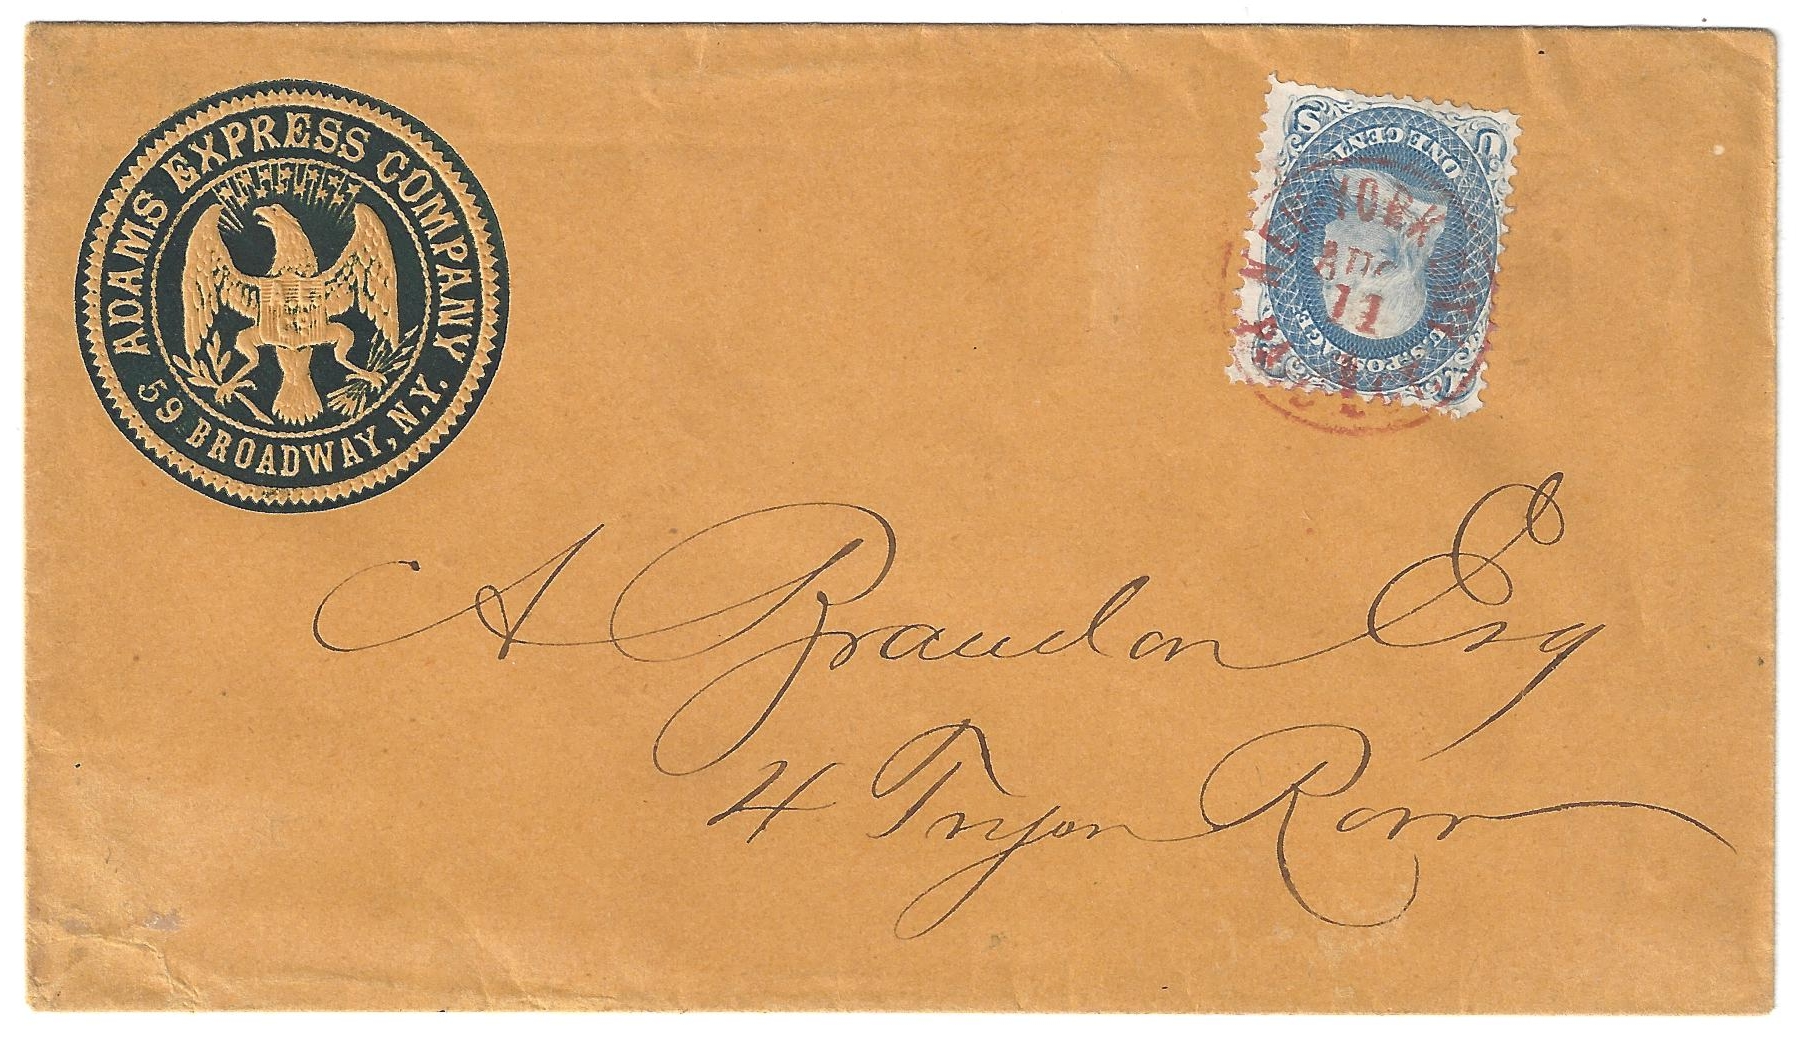 ADAMS EXPRESS COMPANY
59 BROADWAY, N.Y.
ONE CENT
U.S. POSTAGE
NEW YORK
AUG
11
A Brandon Esq
4 Tryon Row